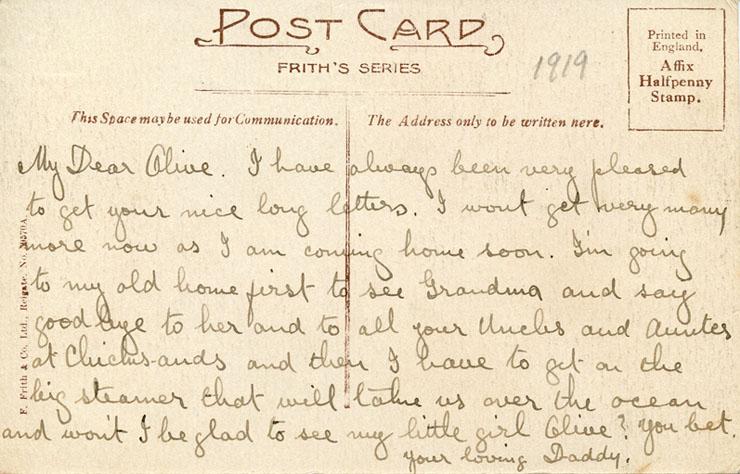 POST CARD
FRITH'S SERIES
1919
Printed in
England.
Affix
Halfpenny
Stamp.
This Space may be used for Communication.
The Address only to be written here.
My Dear Olive. I have always been very pleased
to get your nice long letters. I wont get very many
more now as I am coming home soon. I'm going
to my old home first to see Grandma and say
good bye to her and to all your Uncles and Aunties
at and then I have to get on the
big steamer that will take us over the ocean
and won't I be glad to see my little girl Olive? You bet.
Your loving Daddy.
F. Frith & Co. Ltd., Reigate. No.